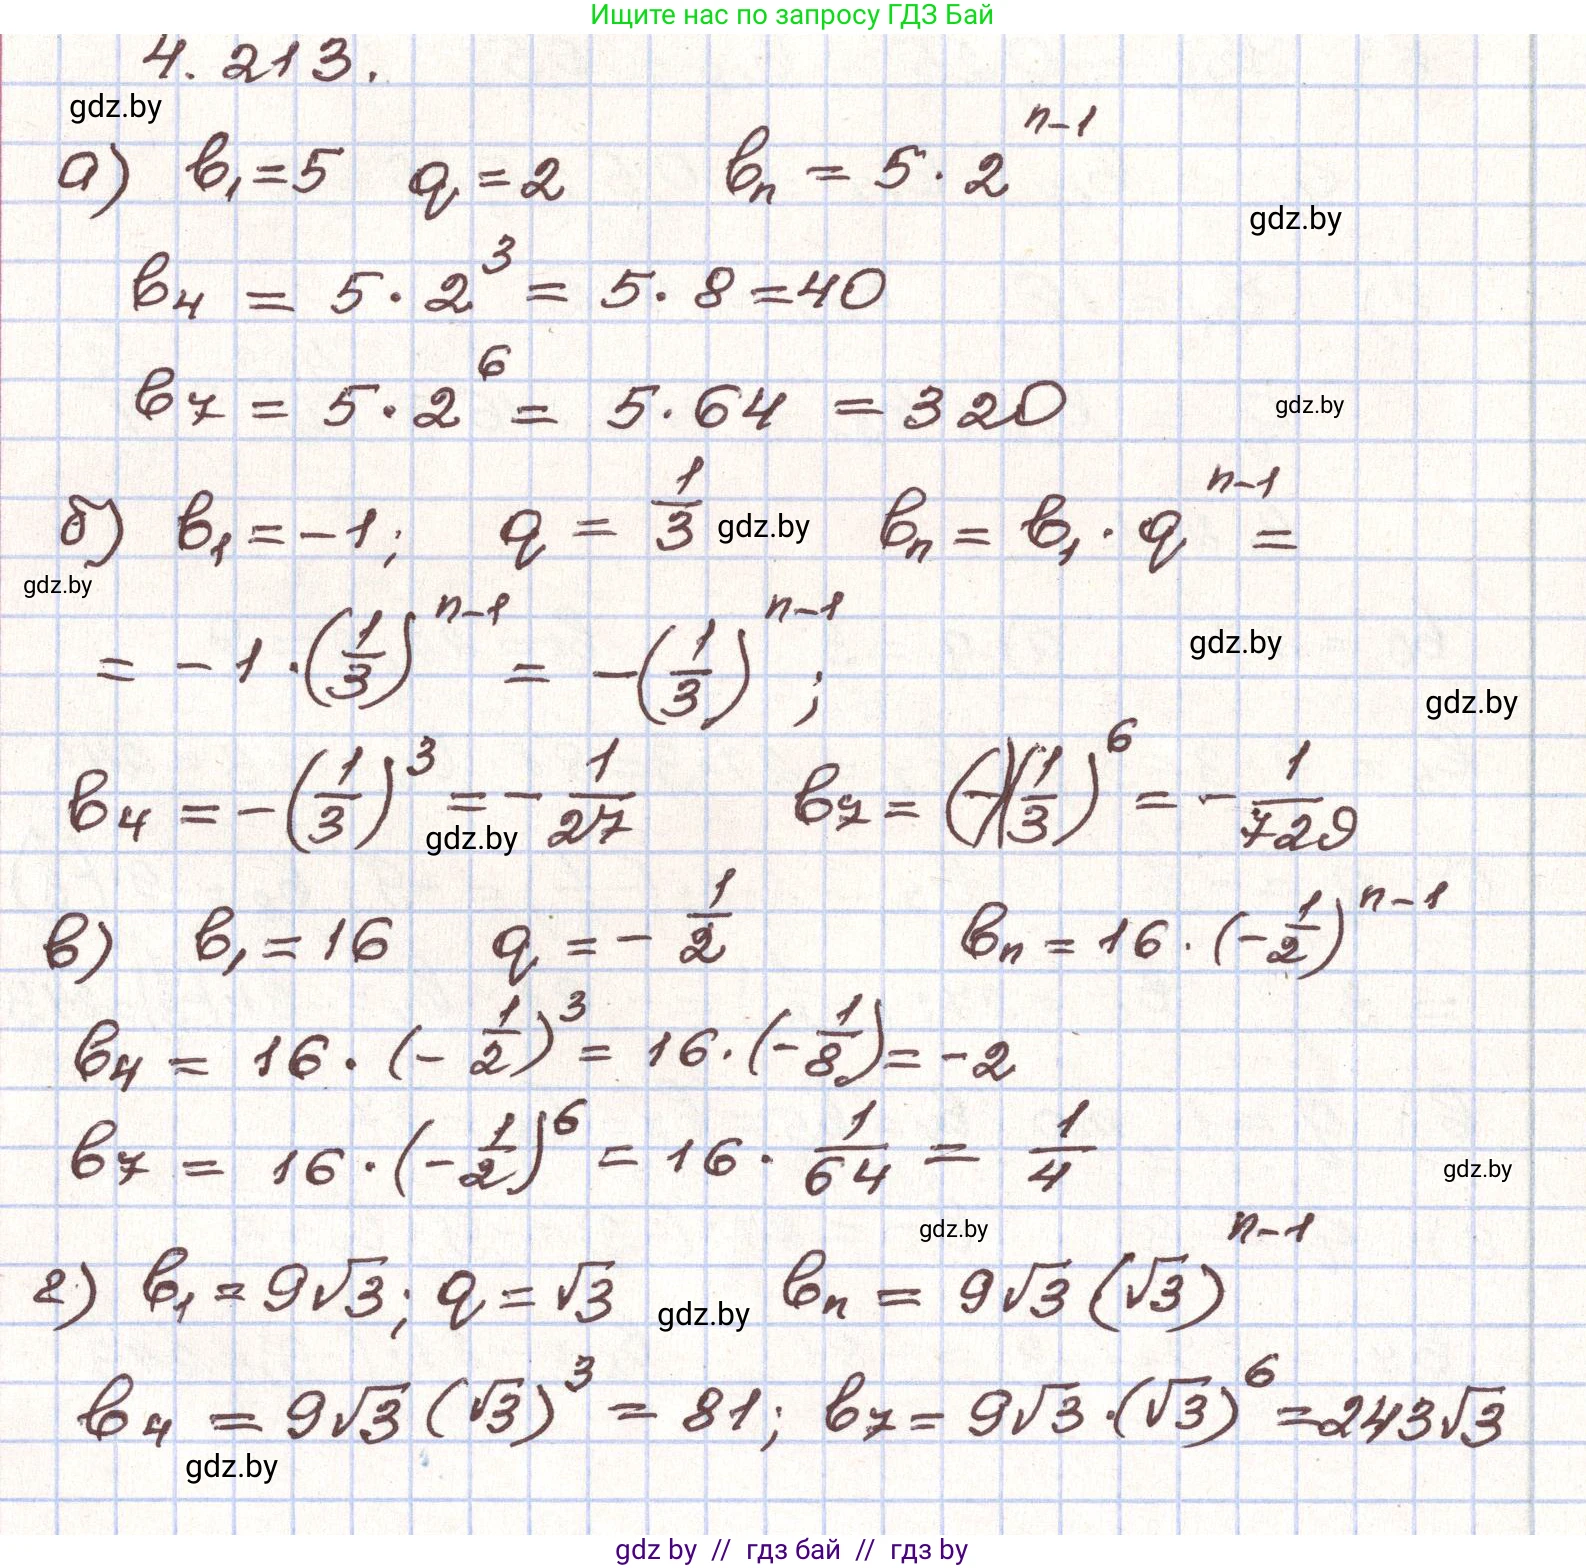 Ищите нас по запросу ГДЗ Бай
4.213.
gdz.by
а) b₁ = 5 q = 2 bₙ = 5 · 2ⁿ⁻¹
gdz.by
b₄ = 5 · 2³ = 5 · 8 = 40
b₇ = 5 · 2⁶ = 5 · 64 = 320
gdz.by
б) b₁ = -1; q = 1/3 gdz.by bₙ = b₁ · qⁿ⁻¹ =
gdz.by
= -1 · (1/3)ⁿ⁻¹ = -(1/3)ⁿ⁻¹;
gdz.by
gdz.by
b₄ = -(1/3)³ = -1/27 b₇ = (-)(1/3)⁶ = -1/729
gdz.by
в) b₁ = 16 q = -1/2 bₙ = 16 · (-1/2)ⁿ⁻¹
b₄ = 16 · (-1/2)³ = 16 · (-1/8) = -2
b₇ = 16 · (-1/2)⁶ = 16 · 1/64 = 1/4
gdz.by
gdz.by
г) b₁ = 9√3; q = √3 gdz.by bₙ = 9√3 (√3)ⁿ⁻¹
b₄ = 9√3 (√3)³ = 81; b₇ = 9√3 · (√3)⁶ = 243√3
gdz.by
gdz by // гдз бай // гдз by